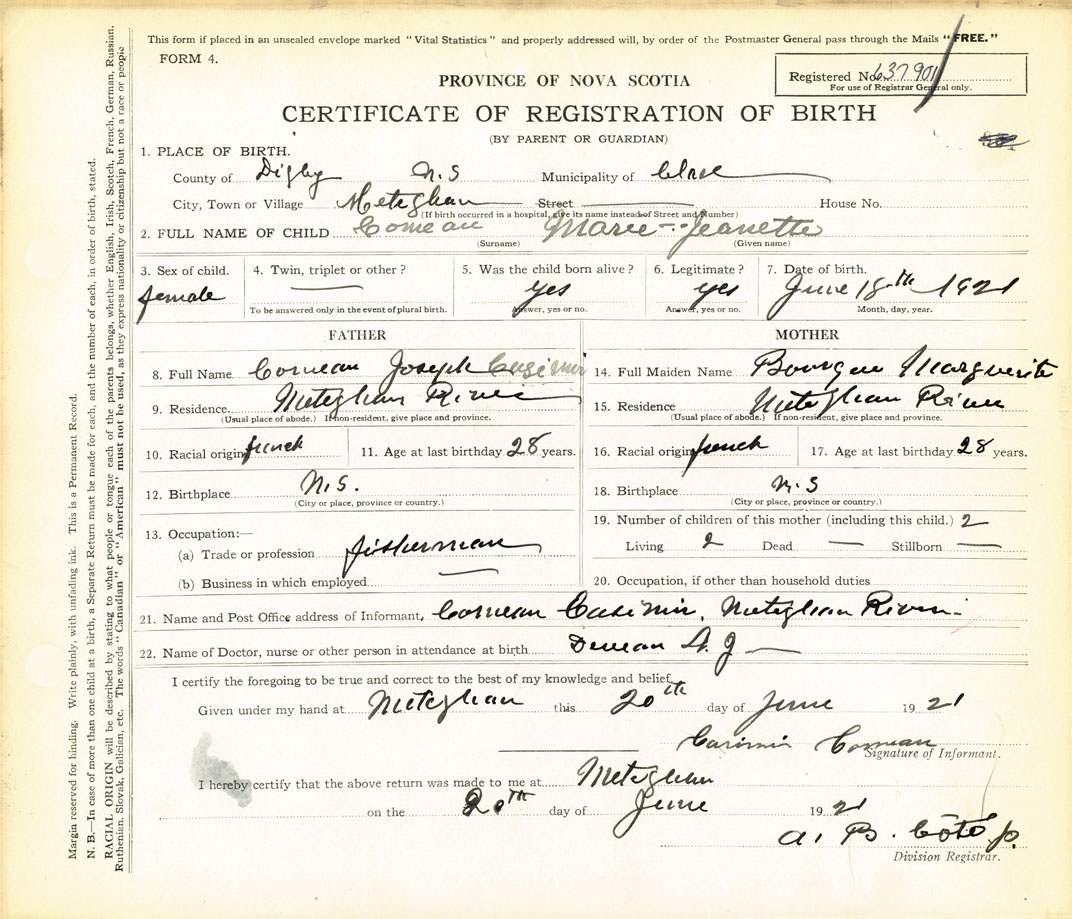 This form if placed in an unsealed envelope marked "Vital Statistics" and properly addressed will, by order of the Postmaster General pass through the Mails "FREE."
FORM 4.
Registered No. 637901
For use of Registrar General only.
PROVINCE OF NOVA SCOTIA
CERTIFICATE OF REGISTRATION OF BIRTH
(BY PARENT OR GUARDIAN)
1. PLACE OF BIRTH.
County of Digby N.S Municipality of Clare
City, Town or Village Meteghan Street House No.
(If birth occurred in a hospital, give its name instead of Street and Number)
2. FULL NAME OF CHILD Comeau Marie-Jeanette
(Surname) (Given name)
3. Sex of child. 4. Twin, triplet or other? 5. Was the child born alive? 6. Legitimate? 7. Date of birth.
female yes yes June 18th 1921
To be answered only in the event of plural birth. Answer, yes or no. Answer, yes or no. Month, day, year.
FATHER
8. Full Name Comeau Joseph Casimir
9. Residence Meteghan River
(Usual place of abode.) If non-resident, give place and province.
10. Racial origin french 11. Age at last birthday 28 years.
12. Birthplace N.S.
(City or place, province or country.)
13. Occupation:—
(a) Trade or profession fisherman
(b) Business in which employed
MOTHER
14. Full Maiden Name Bourque Marguerite
15. Residence Meteghan River
(Usual place of abode.) If non-resident, give place and province.
16. Racial origin french 17. Age at last birthday 28 years.
18. Birthplace N.S
(City or place, province or country.)
19. Number of children of this mother (including this child.) 2
Living 2 Dead — Stillborn —
20. Occupation, if other than household duties
21. Name and Post Office address of Informant, Comeau Casimir, Meteghan River
22. Name of Doctor, nurse or other person in attendance at birth
I certify the foregoing to be true and correct to the best of my knowledge and belief.
Given under my hand at Meteghan this 20th day of June 1921
Casimir Comeau
Signature of Informant.
I hereby certify that the above return was made to me at Meteghan
on the 20TH day of June 1921
A. B. Côté
Division Registrar.
Margin reserved for binding. Write plainly, with unfading ink. This is a Permanent Record.
N. B.—In case of more than one child at a birth, a Separate Return must be made for each, and the number of each, in order of birth, stated.
RACIAL ORIGIN will be described by stating to what people or tongue each of the parents belongs, whether English, Irish, Scotch, French, German, Russian,
Ruthenian, Slovak, Galician, etc. The words "Canadian" or "American" must not be used, as they express nationality or citizenship but not a race or people